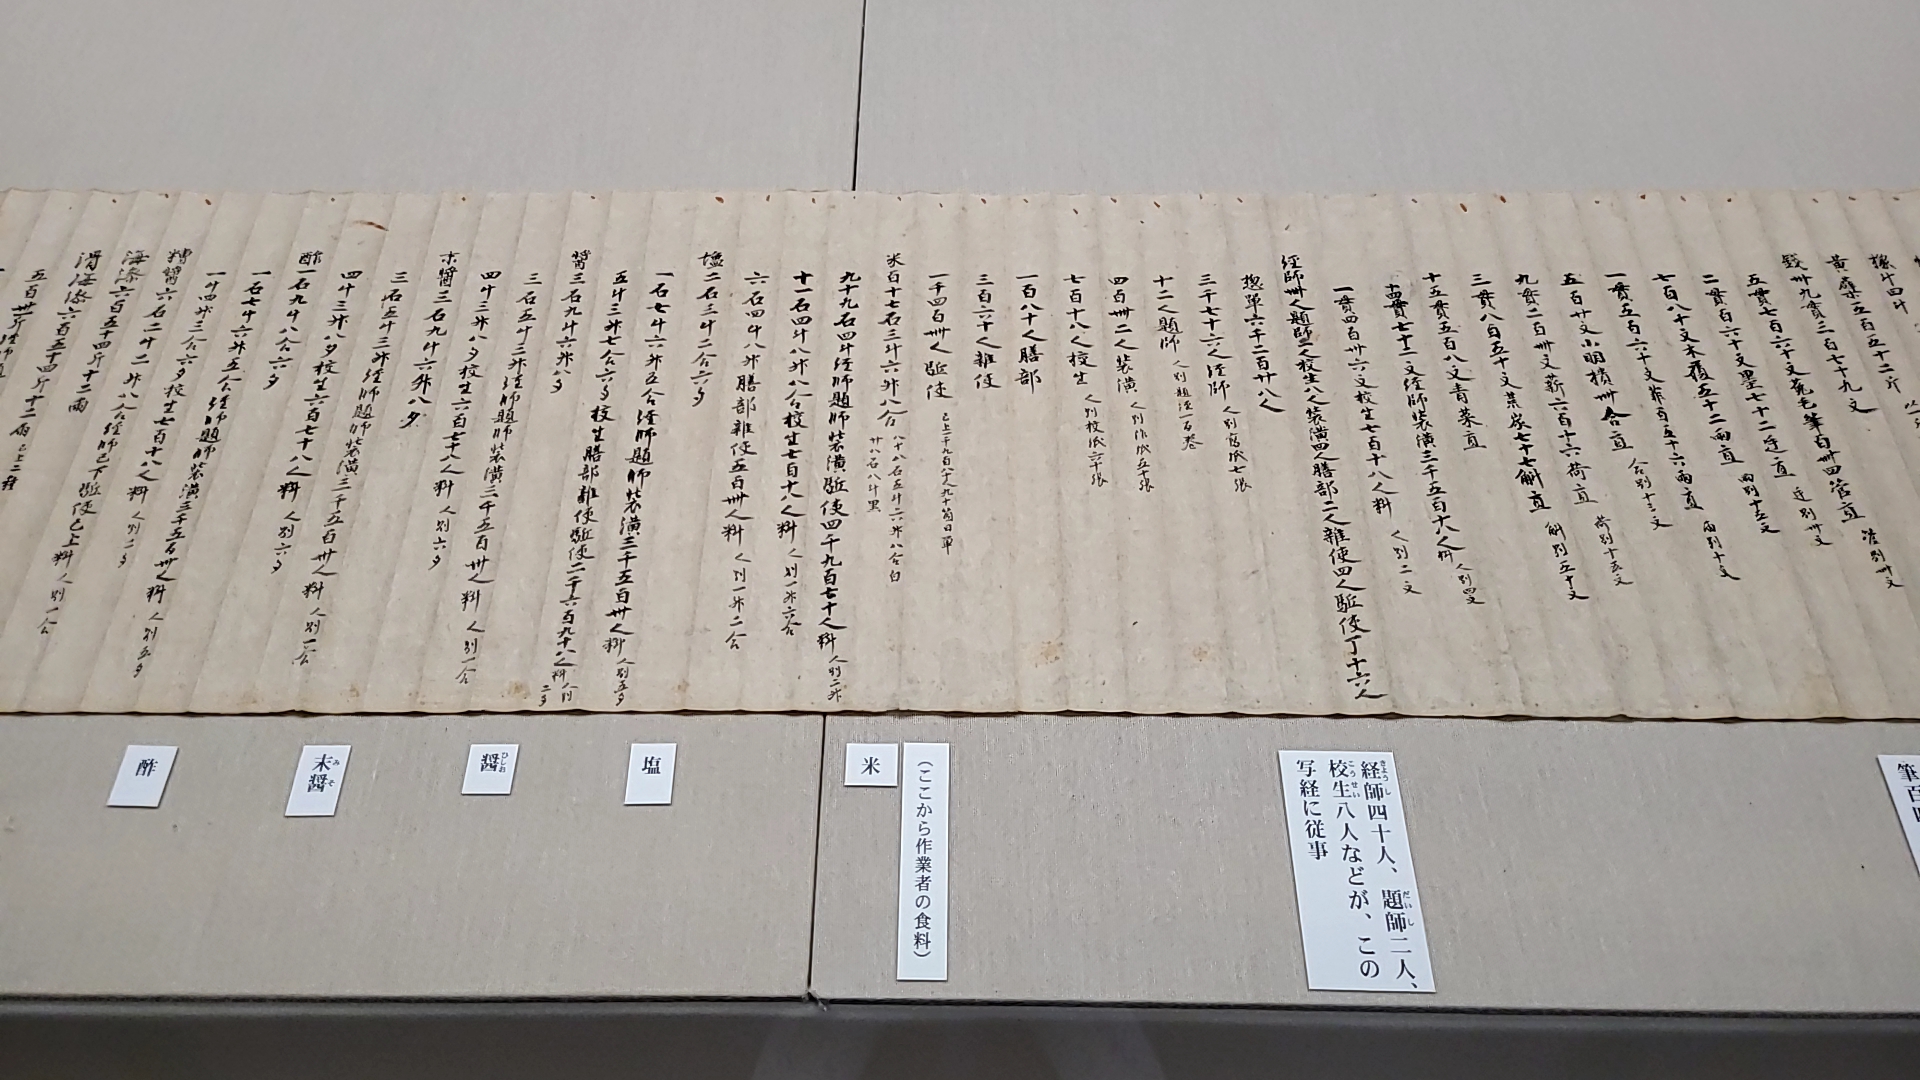 橡十四斗
黄蘗五百五十二斤
銭卌九貫三百七十九文
五貫七百六十文菟毛筆百卌四管直 管別卌文
二貫百六十文墨七十二廷直 廷別卅文
七百八十文木履五十二両直 両別十五文
一貫五百六十文菲百五十六両直 両別十文
五百廿文小明樻卌合直 合別十三文
九貫二百卌文薪六百十六荷直 荷別十五文
三貫八百五十文荒炭七十七斛直 斛別五十文
十五貫五百八文青菜直
十四貫七十二文経師装潢三千五百十八人料 人別四文
一貫四百卅六文校生七百十八人料 人別二文
経師卌人題師二人校生八人装潢四人膳部二人雑使四人駈使丁十六人
惣単六千二百廿八人
三千七十六人経師 人別写紙七張
十二人題師 人別題経一百巻
四百卌二人装潢 人別作紙五十張
七百十八人校生 人別校紙六十張
一百八十人膳部
三百六十人雑使
一千四百卌人駈使 已上千九百八十人九十箇日単
米百十七石三斗六升八合 八十八石五斗六升八合白
廿八石八斗黒
九十九石四斗経師題師装潢駈使四千九百七十人料 人別二升
十一石四斗八升八合校生七百十八人料 人別一升六合
六石四斗八升膳部雑使五百卌人料 人別一升二合
塩二石三斗二合六夕
一石七斗六升五合経師題師装潢三千五百卅人料 人別五夕
五斗三升七合六夕校生膳部雑使駈使二千六百九十八人料 人別二夕
醤三石九斗六升八夕
三石五斗三升経師題師装潢三千五百卅人料 人別一合
四斗三升八夕校生七百十八人料 人別六夕
末醤三石九斗六升八夕
三石五斗三升経師題師装潢三千五百卅人料 人別一合
四斗三升八夕校生七百十八人料 人別六夕
酢一石九斗八合六夕
一石七斗六升五合経師題師装潢三千五百卅人料 人別五夕
一斗四升三合六夕校生七百十八人料 人別二夕
糟醤六石二斗二升八合経師已下駈使已上料 人別一合
海藻六百五十四斤十二両
滑海藻六百五十四斤十二両 已上二種
経師四十人、題師二人、
校生八人などが、この
写経に従事
(ここから作業者の食料)
米
塩
醤
末醤
酢